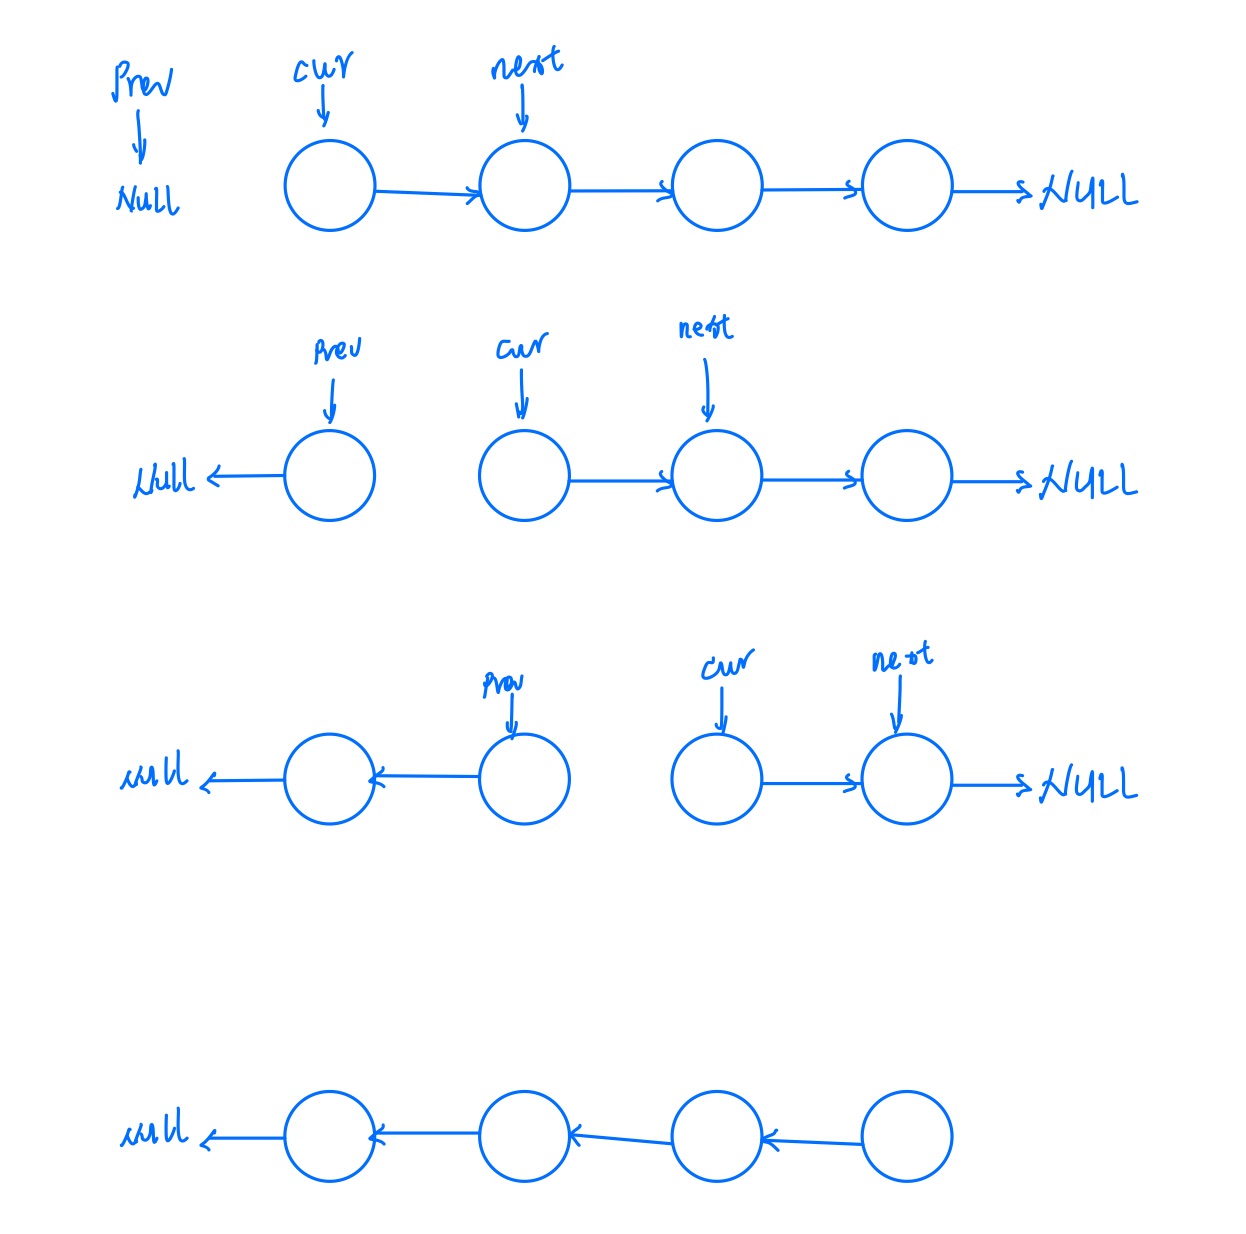 Prev cur next
Null NULL
Prev cur next
Null NULL
Prev cur next
null NULL
null